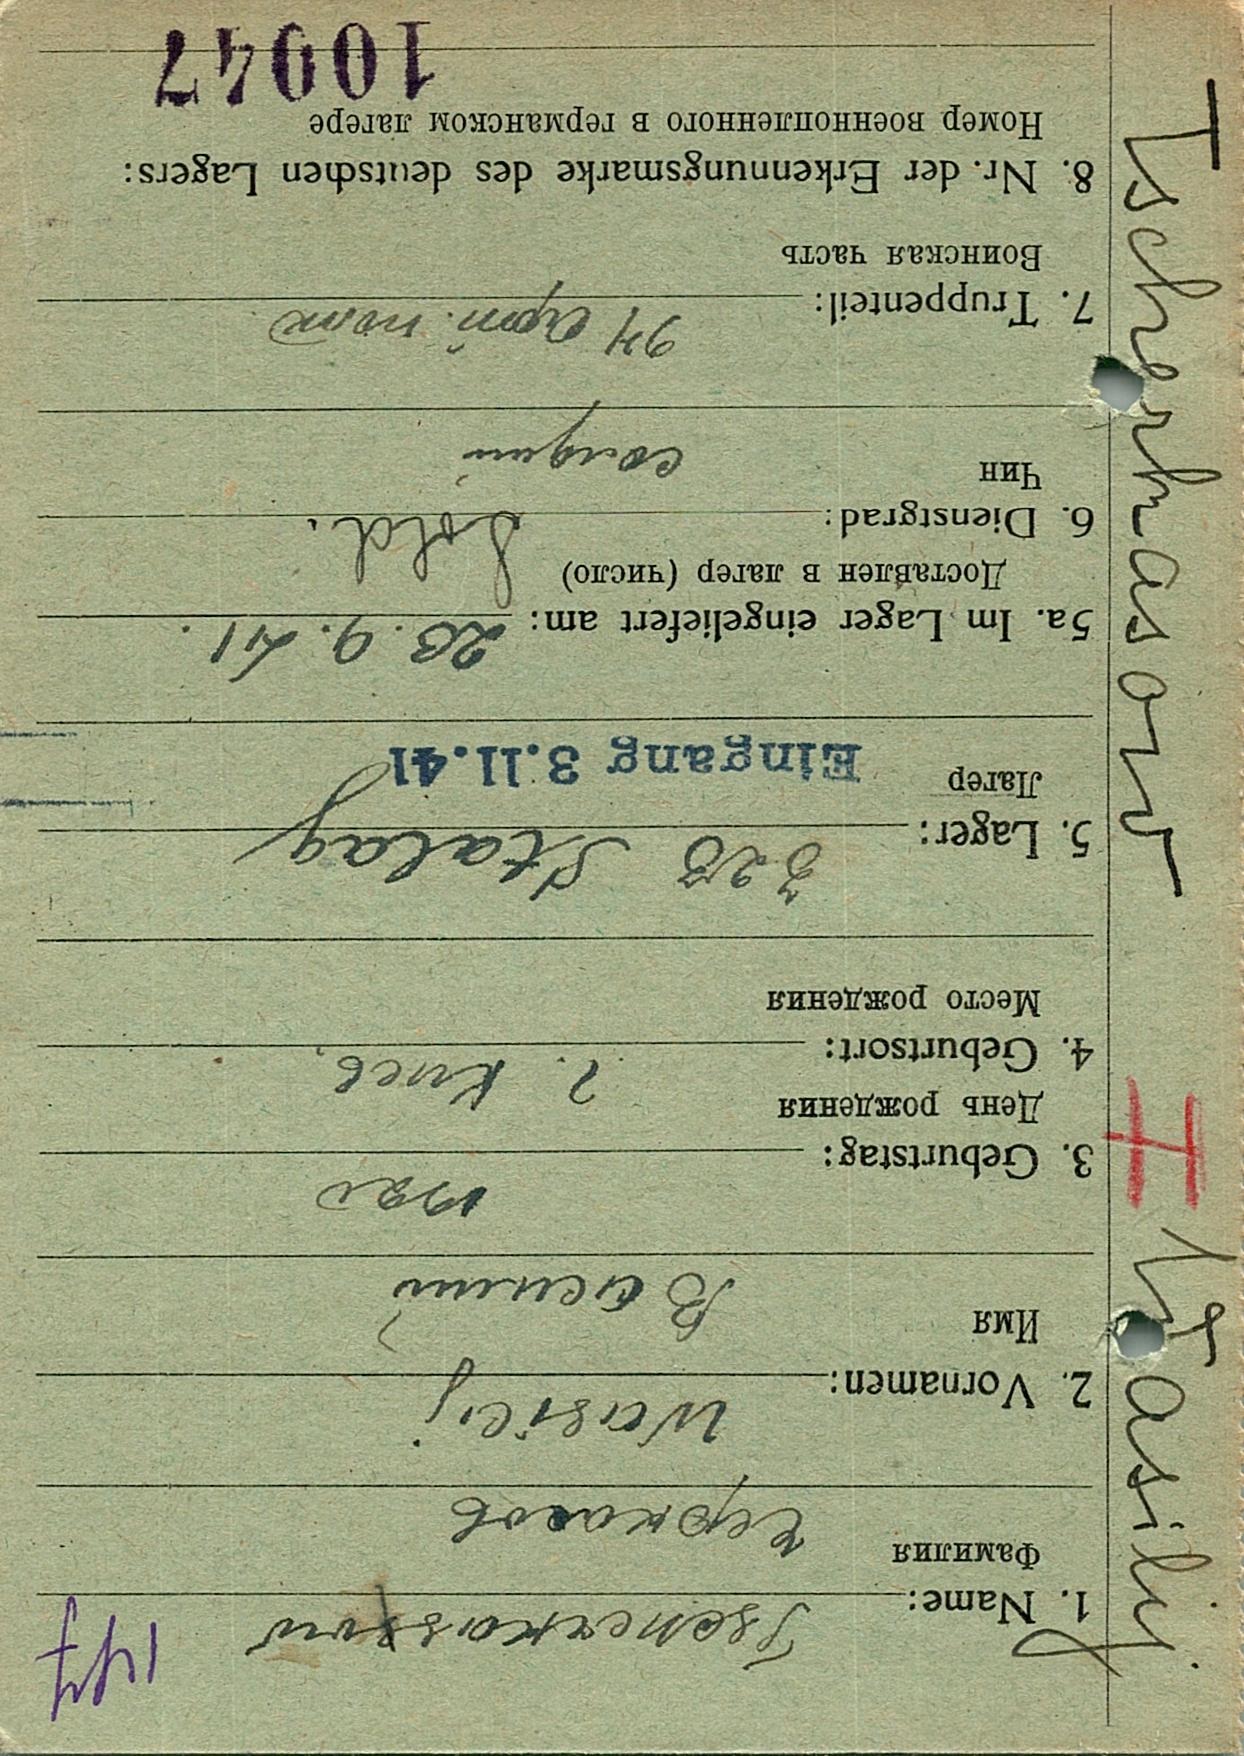 147
1. Name: Tscherkasow
Фамилия Черкасов
2. Vornamen: Wasilij
Имя Василий
3. Geburtstag: 1920
День рождения
4. Geburtsort: г. Киев,
Место рождения
5. Lager: 328 Stalag
Лагер Eingang 3.11.41
5a. Im Lager eingeliefert am: 28.9.41.
Доставлен в лагер (число)
6. Dienstgrad: Sold.
Чин солдат
7. Truppenteil: 94 арт. полк
Воинская часть
8. Nr. der Erkennungsmarke des deutschen Lagers:
Номер военнопленного в германском лагере
10947
Tscherkasow H Wasilij